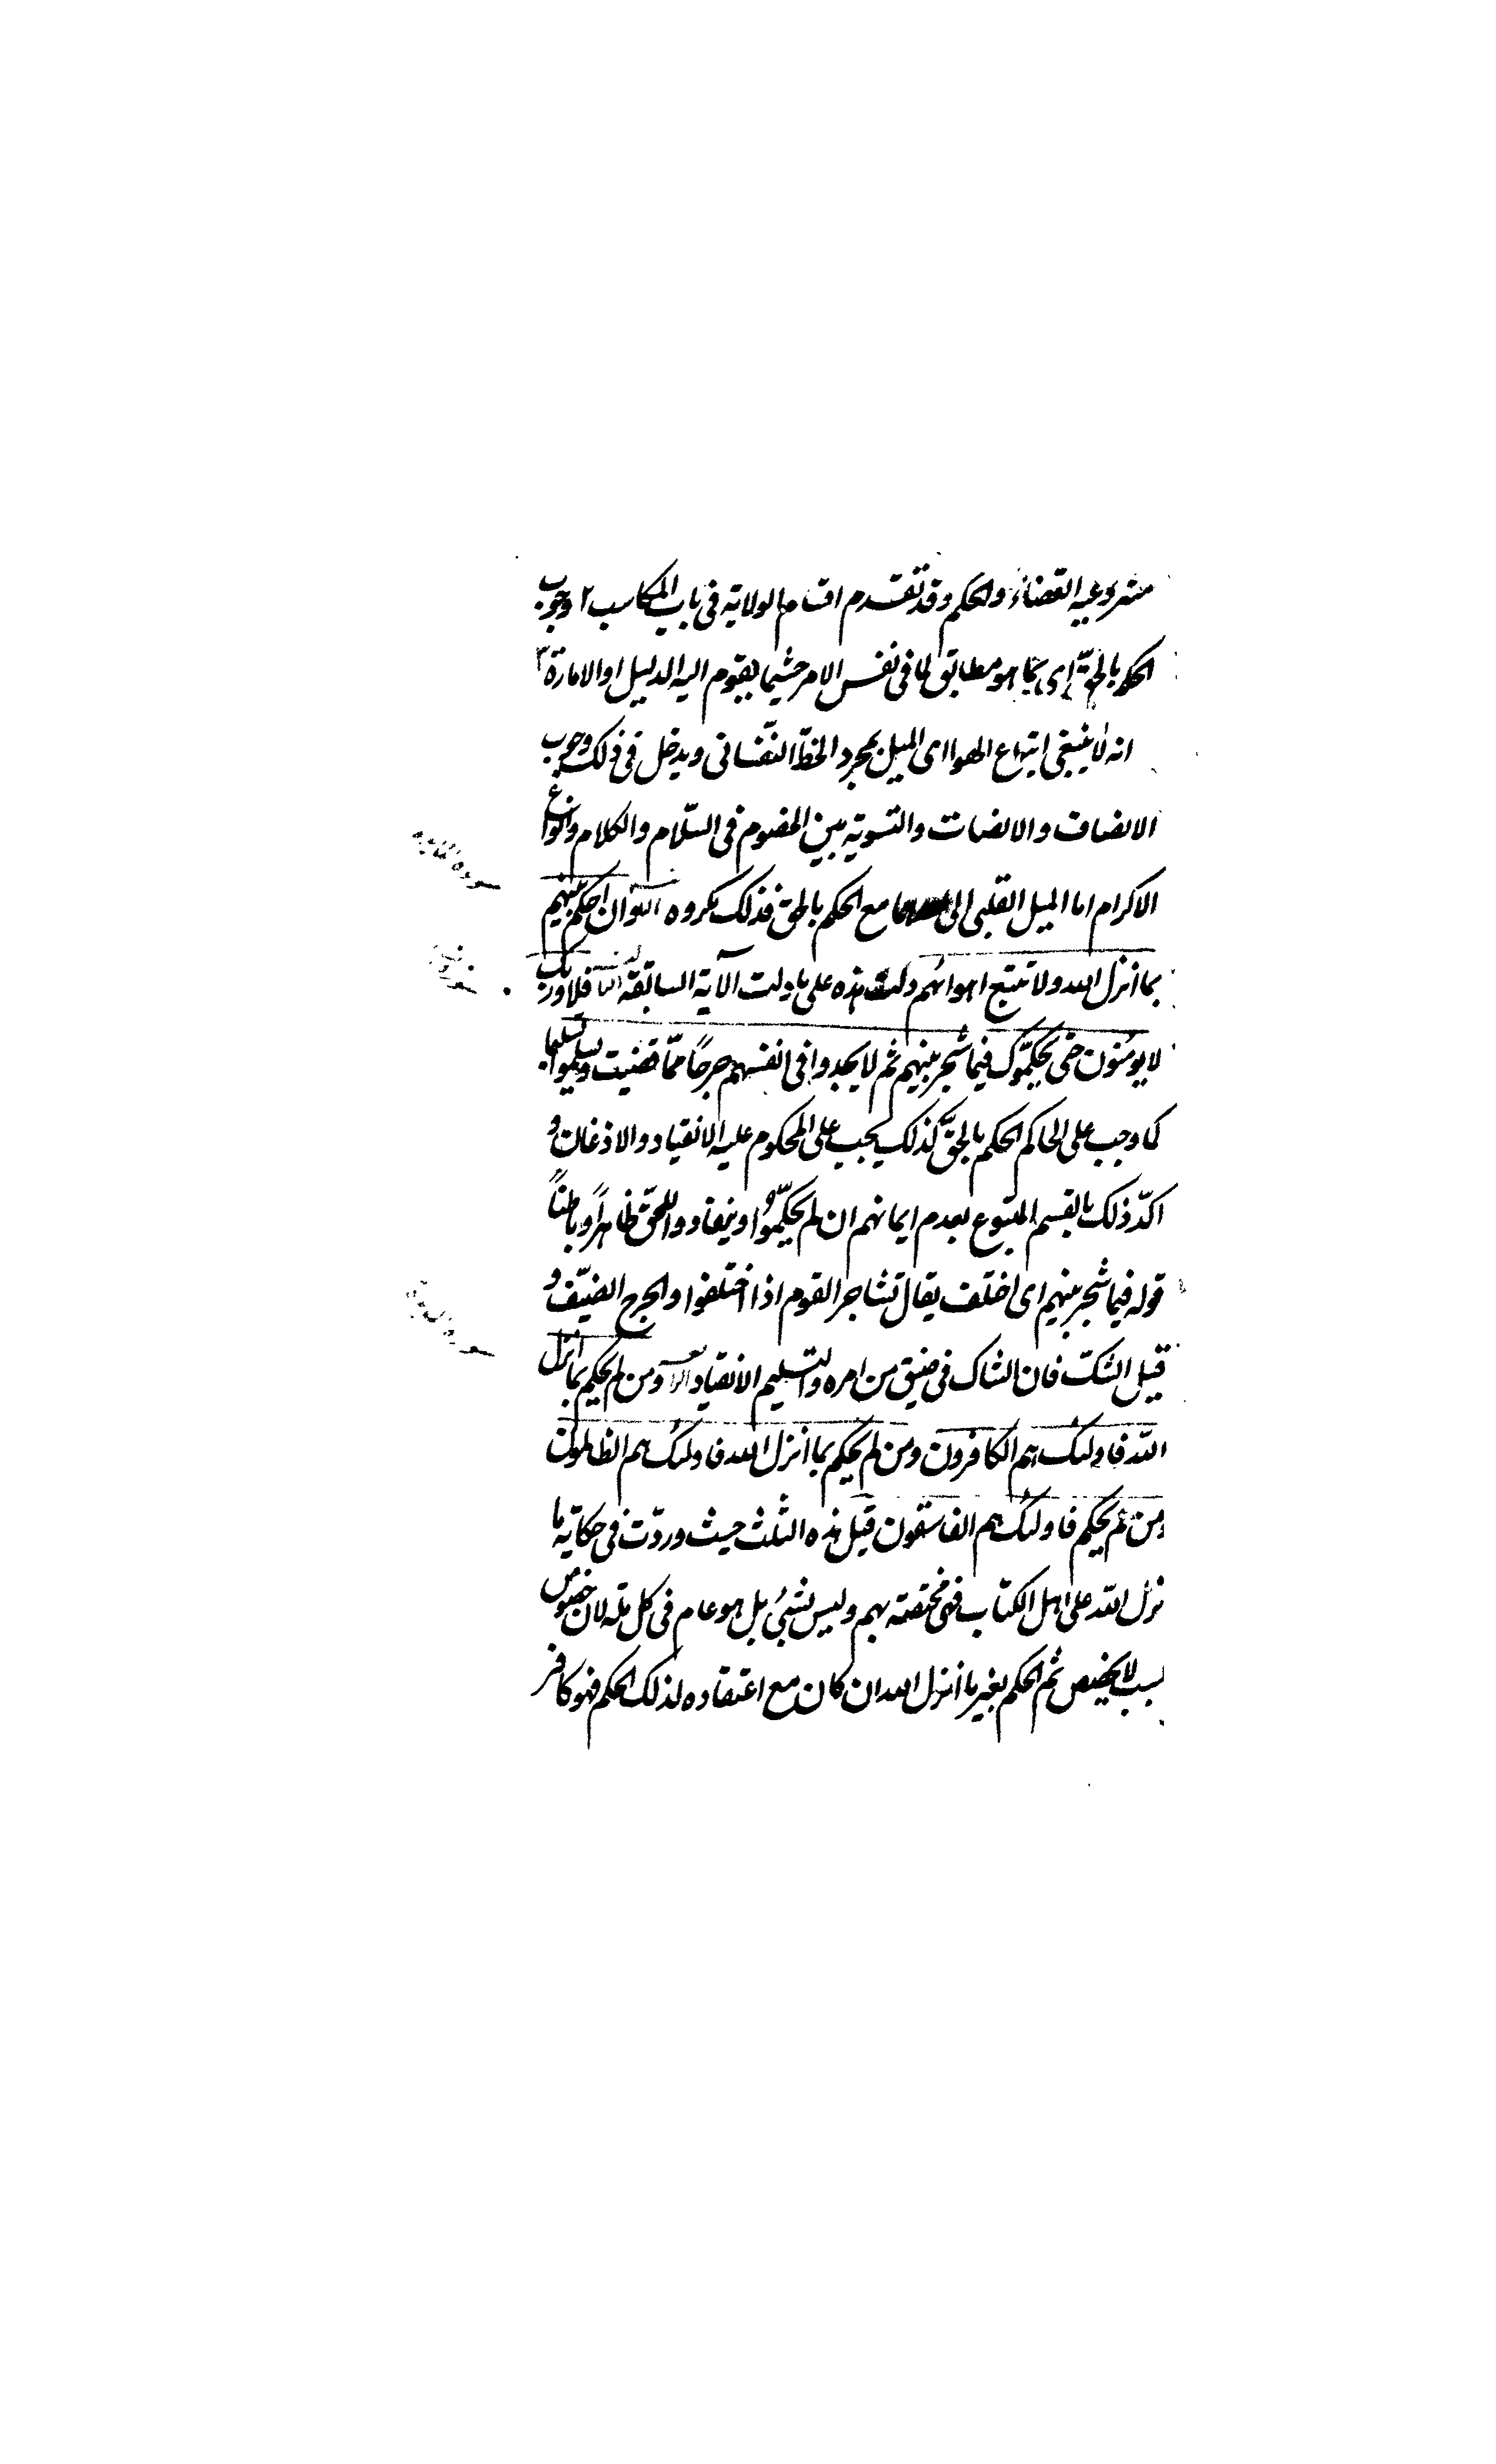 مشروعيه القضاء والحكم وقد تقدم اقسام الولاية فى باب المكاسب ٢ وجوب
الحكم بالحقّ اى بما هو مطابق لما فى نفس الامر حيثما يقوم اليه الدليل او الامارة ٣
انه لا ينبغى اتباع الهوا اى الميل بمجرد الحظّ النفسانى ويدخل فى ذلك وجوب
الانصاف والانصات والتسوية بين الخصوم فى السّلام والكلام وانواع
الاكرام اما الميل القلبى الى مع الحكم بالحق فذلك مكروه وان احكم بينهم
بما انزل الله ولا تتبع اهوائهم دلت هذه على ما دلت الآية السابقة فلا وربك
لا يؤمنون حتى يحكّموك فيما شجر بينهم ثم لا يجدوا فى انفسهم حرجًا ممّا قضيت ويسلّموا تسليما
كما وجب على الحاكم الحكم بالحقّ كذلك يجب على المحكوم عليه الانقياد والاذعان و
اكدّ ذلك بالقسم المتبوع بعدم ايمانهم ان لم يحكّموا وينقادوا للحقّ ظاهراً وباطناً
قوله فيما شجر بينهم اى اختلف يقال تشاجر القوم اذا اختلفوا والحرج الضيّق و
قيل الشكّ فان الشاك فى ضيق من امره والتسليم الانقياد ومن لم يحكم بما انزل
اللّه فاولئك هم الكافرون ومن لم يحكم بما انزل الله فاولئك هم الظالمون
ومن لم يحكم فاولئك هم الفاسقون قيل هذه الثلث حيث وردت فى حكاية ما
نزل اللّه على اهل الكتاب فهى مختصة بهم وليس بشئ بل هو عام فى كل ملة لان خصوص
لسبب لا يخصص ثم الحكم بغير ما انزل الله ان كان مع اعتقاده لذلك الحكم فهو كافر